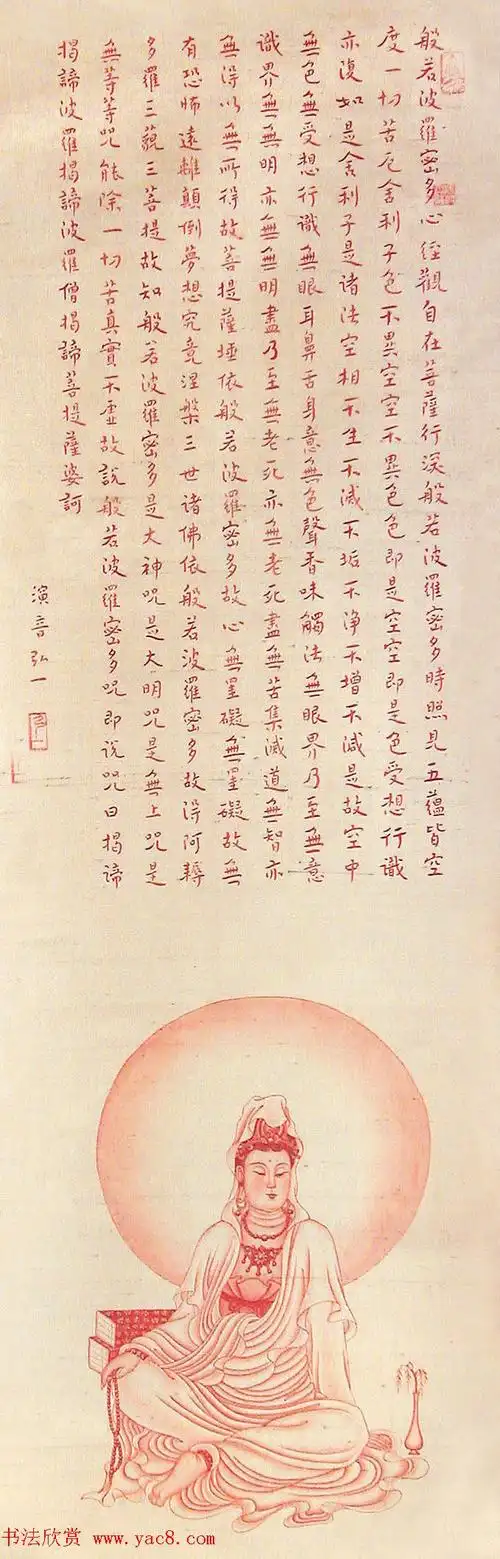 般若波羅密多心經觀自在菩薩行深般若波羅密多時照見五蘊皆空
度一切苦厄舍利子色不異空空不異色色即是空空即是色受想行識
亦復如是舍利子是諸法空相不生不滅不垢不淨不增不減是故空中
無色無受想行識無眼耳鼻舌身意無色聲香味觸法無眼界乃至無意
識界無無明亦無無明盡乃至無老死亦無老死盡無苦集滅道無智亦
無得以無所得故菩提薩埵依般若波羅密多故心無罣礙無罣礙故無
有恐怖遠離顛倒夢想究竟涅槃三世諸佛依般若波羅密多故得阿耨
多羅三藐三菩提故知般若波羅密多是大神咒是大明咒是無上咒是
無等等咒能除一切苦真實不虛故說般若波羅密多咒即说咒曰揭諦
揭諦波羅揭諦波羅僧揭諦菩提薩婆訶
演音弘一
书法欣赏 www.yac8.com